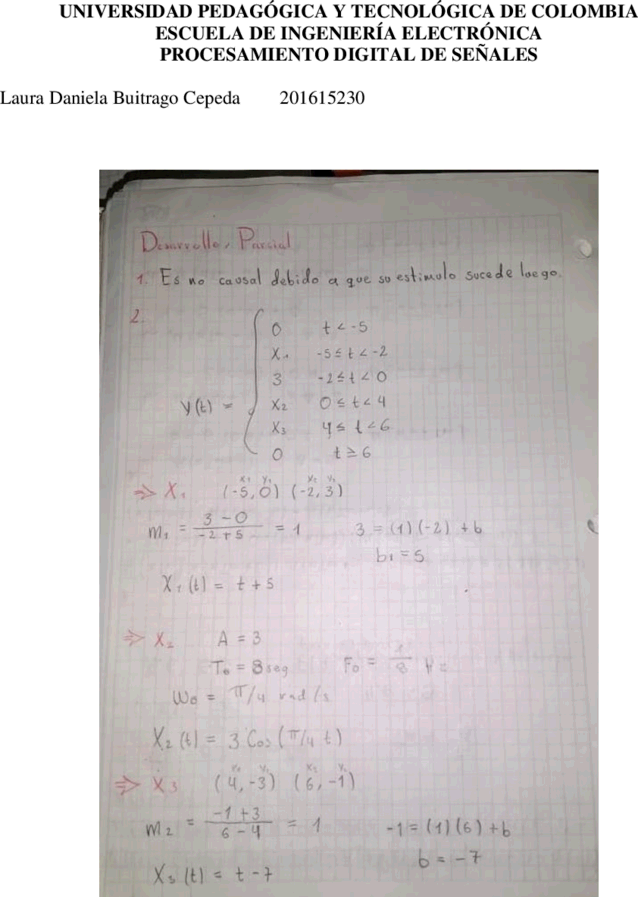 UNIVERSIDAD PEDAGÓGICA Y TECNOLÓGICA DE COLOMBIA
ESCUELA DE INGENIERÍA ELECTRÓNICA
PROCESAMIENTO DIGITAL DE SEÑALES
Laura Daniela Buitrago Cepeda 201615230
Desarrollo, Parcial
1. Es no causal debido a que su estimulo sucede luego.
2.
0 t < -5
X₁ -5 ≤ t < -2
3 -2 ≤ t < 0
y(t) = X₂ 0 ≤ t < 4
X₃ 4 ≤ t < 6
0 t ≥ 6
x₁ y₁ x₂ y₂
⇒ X₁ (-5, 0) (-2, 3)
m₁ = 3 - 0 / -2 + 5 = 1 3 = (1)(-2) + b
b₁ = 5
X₁(t) = t + 5
⇒ X₂ A = 3
T₀ = 8 seg F₀ = 1/8 Hz
W₀ = π/4 rad/s
X₂(t) = 3 Cos(π/4 t)
⇒ X₃ (4, -3) (6, -1)
m₂ = -1 + 3 / 6 - 4 = 1 -1 = (1)(6) + b
b = -7
X₃(t) = t - 7